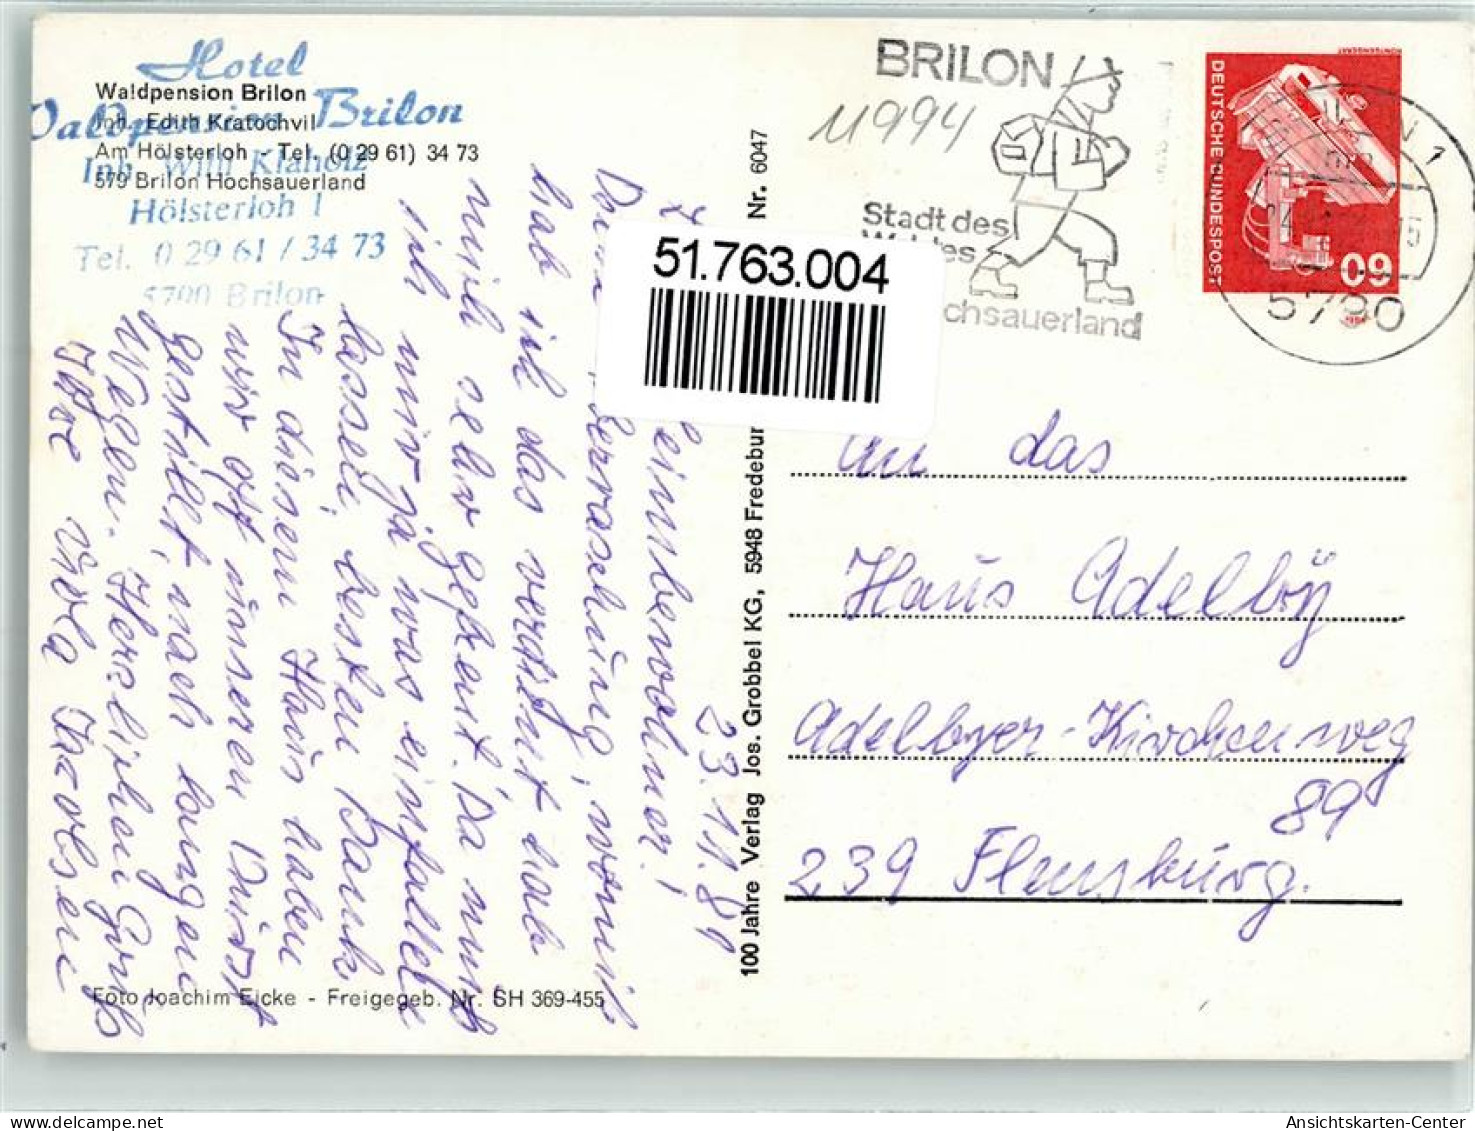 Hotel
Waldpension Brilon
Inh. Willi Klaholz
Hölsterloh 1
Tel. 0 29 61 / 34 73
5790 Brilon
Waldpension Brilon
Inh. Edith Kratochvil
Am Hölsterloh - Tel. (0 29 61) 34 73
579 Brilon Hochsauerland
BRILON
11994
Stadt des
Waldes
chsauerland
DEUTSCHE BUNDESPOST
60
RÖNTGENGERÄT
5790
51.763.004
23.11.81
einbewohner!
Überraschung, womit
hab ich das verdient hab
mich sehr gefreut. Da muß
ich mir ja was einfallen
lassen, besten Dank
In diesem Haus haben
wir oft unseren Durst
gestillt, nach langen
Wegen. Herzlichen Gruß
Ihre Viola Jacobsen
100 Jahre Verlag Jos. Grobbel KG, 5948 Fredebur
Nr. 6047
An das
Haus Adelby
Adelbyer-Kirchenweg
89
239 Flensburg.
Foto Joachim Eicke - Freigegeb. Nr. SH 369-455
Ansichtskarten-Center